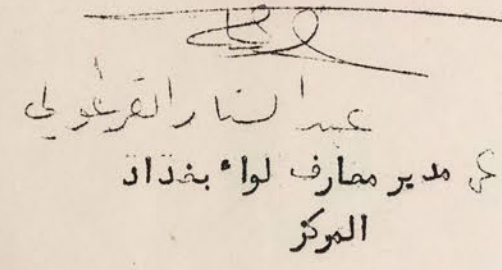 عبد الستار القرغولي
ع/ مدير معارف لواء بغداد
المركز